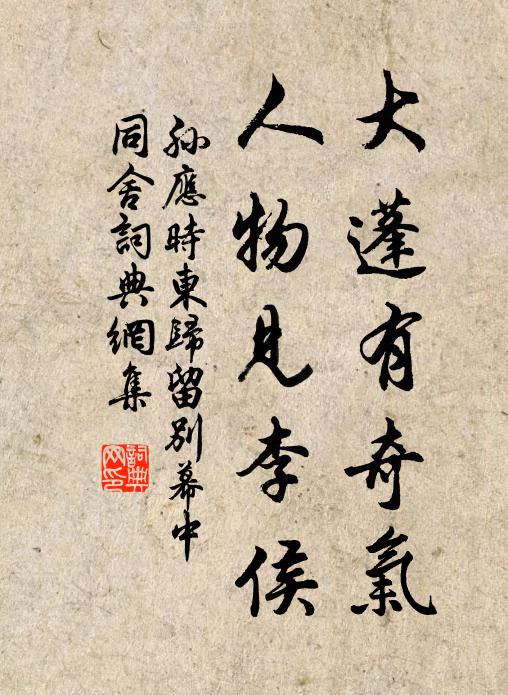 大蓬有奇氣
人物見李侯
孫應時東歸留別幕中
同舍詞典網集
詞典
网印